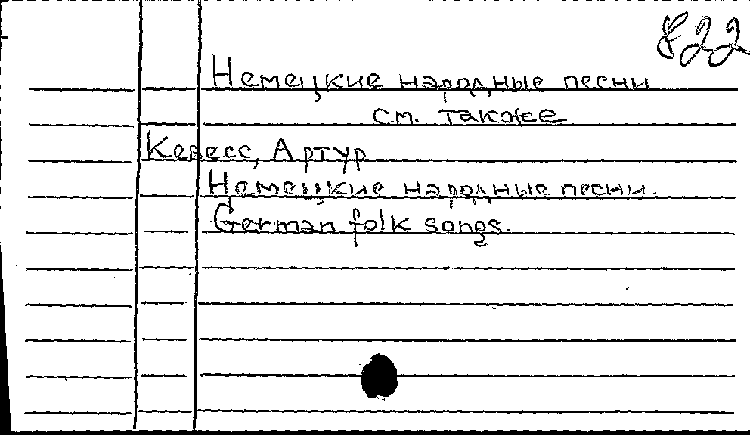 822
Немецкие народные песни
см. также
Кевесс, Артур
Немецкие народные песни.
German folk songs.